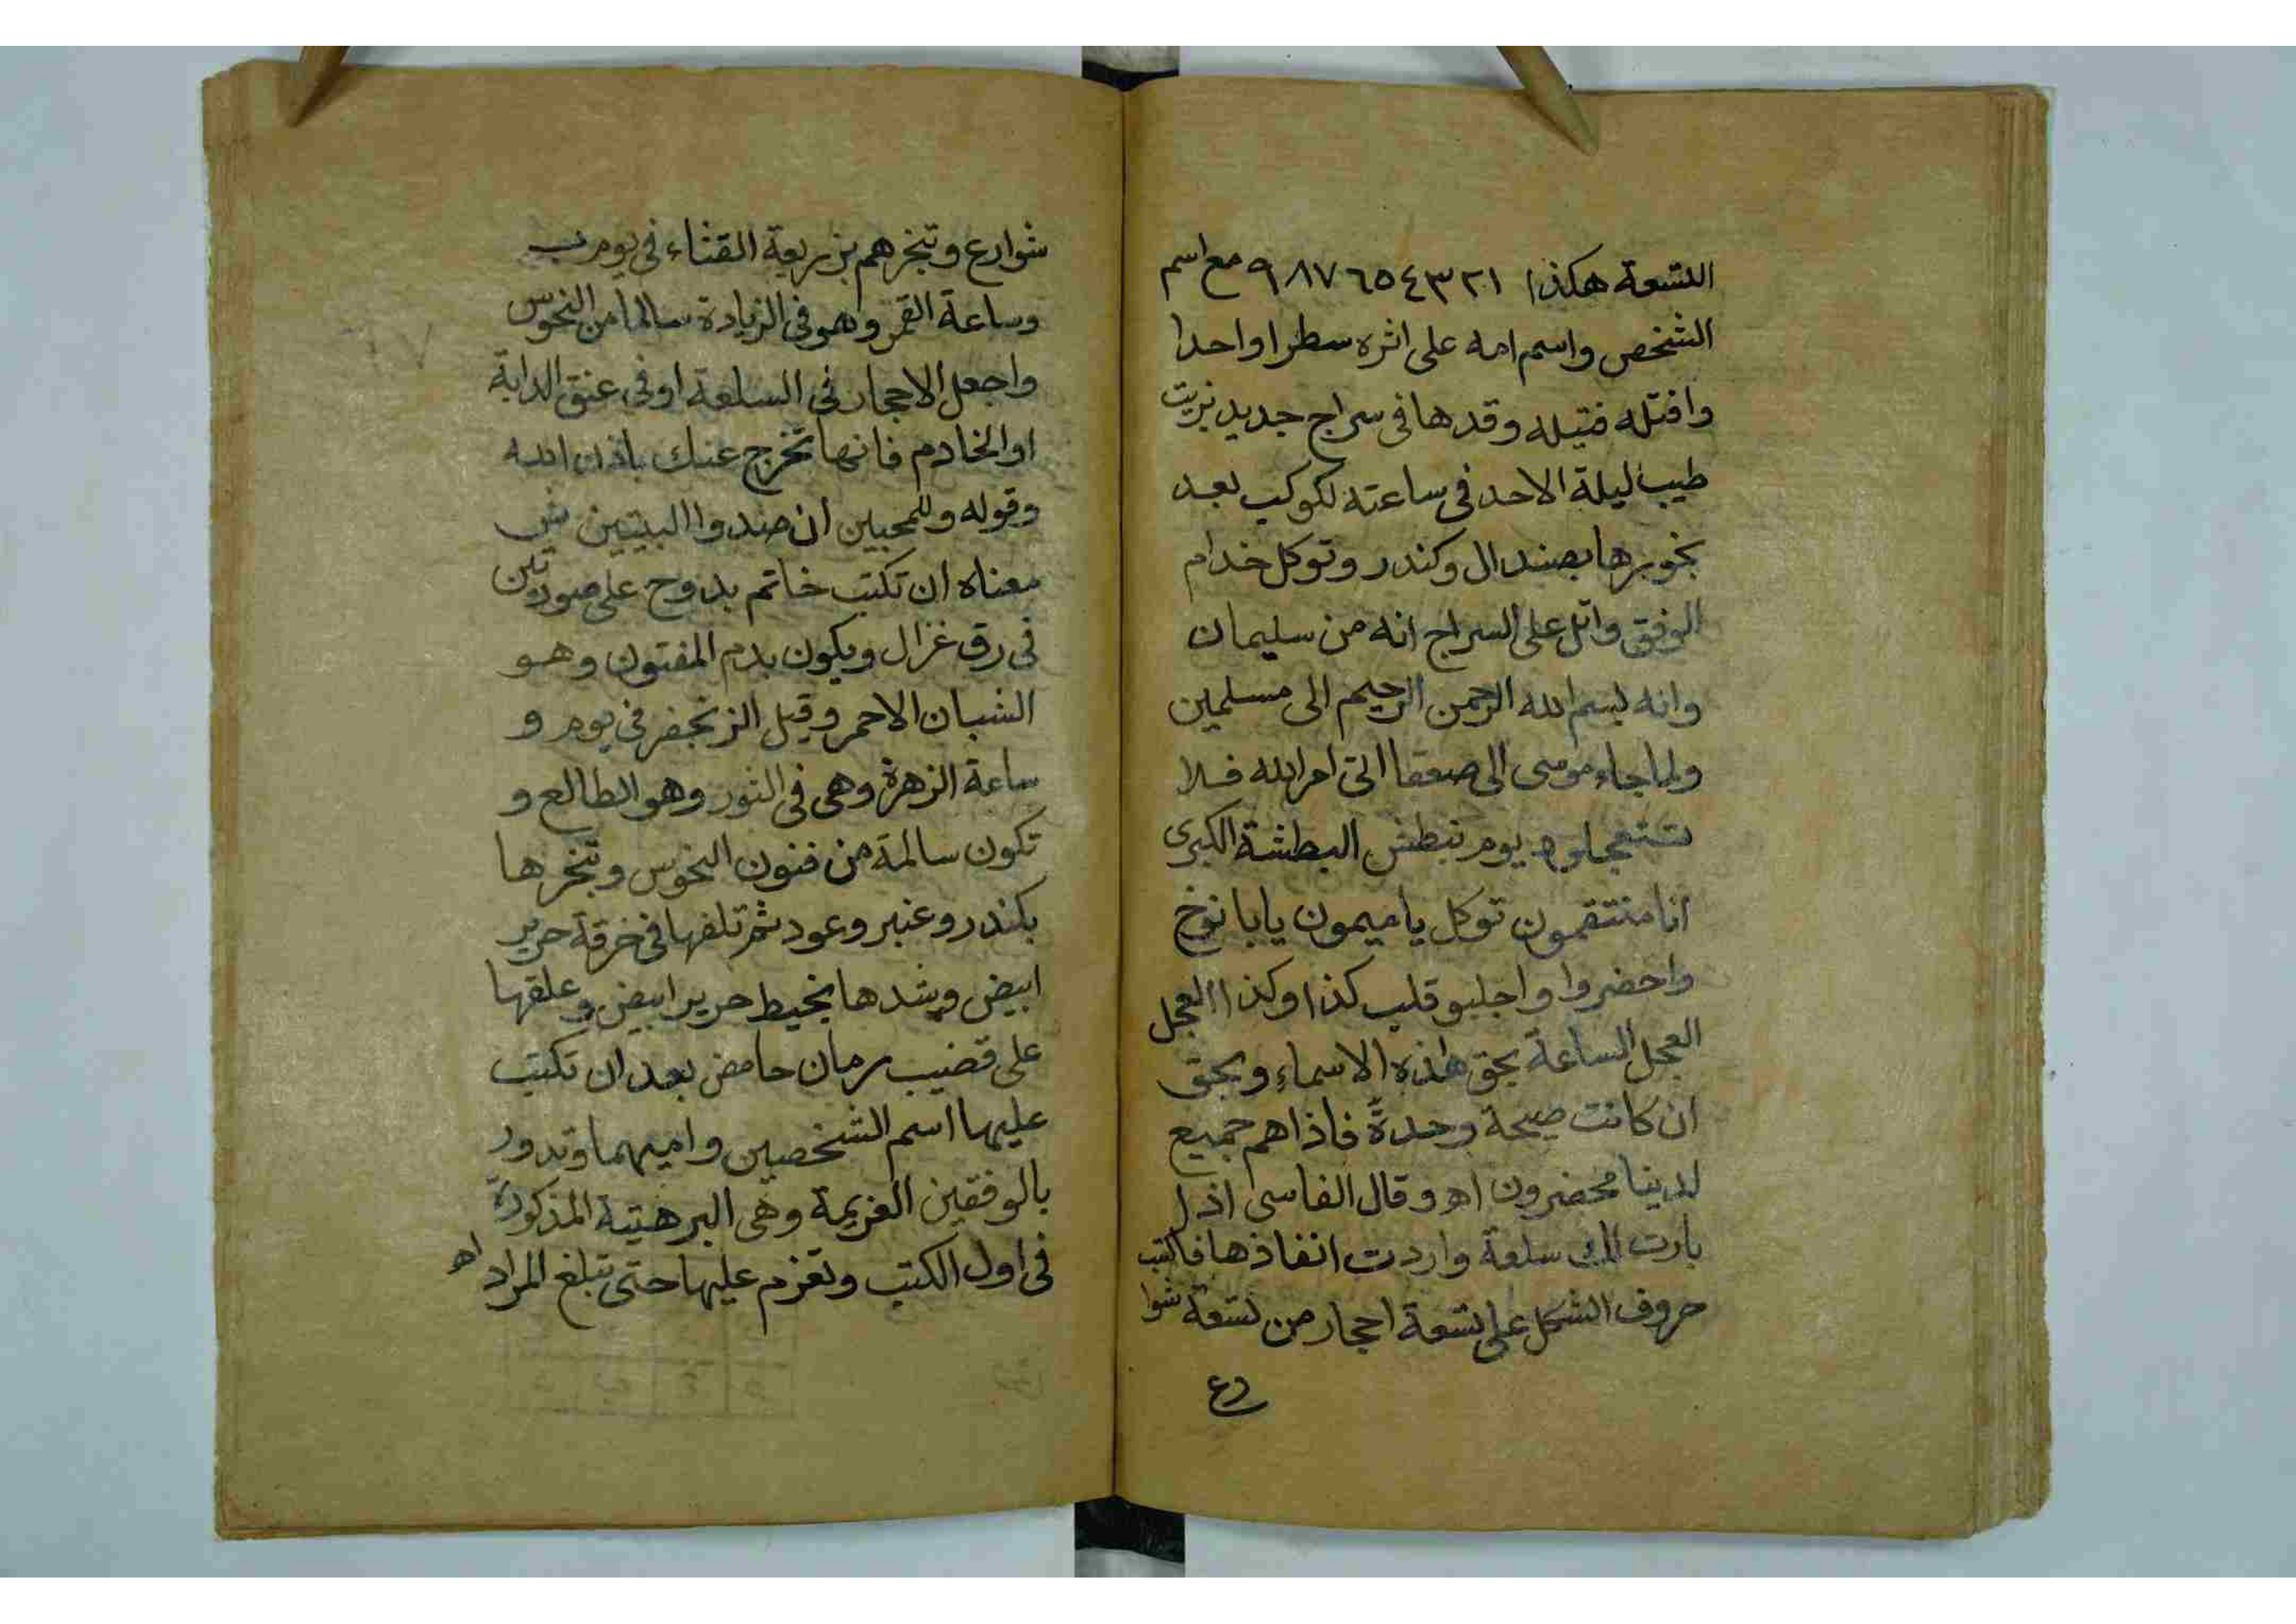 التسعة هكذا ٩٨٧٦٥٤٣٢١ مع اسم
الشخص واسم امه على اثره سطرا واحدا
وافتله فتيله وقدها فى سراج جديد بزيت
طيب ليلة الاحد فى ساعته لكوكب بعد
بخورها بصندال وكندر وتوكل خدام
الوفق واتل على السراج انه من سليمان
وانه بسم الله الرحمن الرحيم الى مسلمين
ولما جاء موسى الى صعقا اتى امر الله فلا
تستعجلوه يوم نبطش البطشة الكبرى
انا منتقمون توكل يا ميمون يابا نوخ
واحضروا واجلبو قلب كذا وكذا العجل
العجل الساعة بحق هذه الاسماء وبحق
ان كانت صيحة وحدةً فاذاهم جميع
لدينا محضرون اه وقال الفاسى اذا
بارت لك سلعة واردت انفاذها فاكتب
حروف الشكل على تسعة احجار من تسعة شوا
رع
شوارع وتبخرهم بزريعة القثاء فى يوم ب
وساعة القمر وهو فى الزيادة سالما من النحوس
واجعل الاحجار فى السلعة اوفى عنق الدابة
او الخادم فانها تخرج عنك باذن الله
وقوله وللمحبين ان صدوا البيتين ش
معناه ان تكتب خاتم بدوح على صورتين
فى رق غزال ويكون بدم المفتون وهو
الشبان الاحمر وقيل الزنجفر فى يوم و
ساعة الزهرة وهى فى الثور وهو الطالع و
تكون سالمة من فنون النحوس وتبخرها
بكندر وعنبر وعود ثم تلفها فى خرقة حرير
ابيض وشدها بخيط حرير ابيض وعلقها
على قضيب رمان حامض بعد ان تكتب
عليها اسم الشخصين واميهما وتدور
بالوفقين العزيمة وهى البرهتية المذكورة
فى اول الكتب وتعزم عليها حتى تبلغ المراد اه